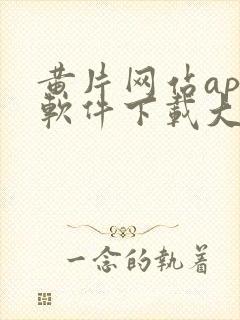 黄片网佔ap
軟件下載大
一念的執着